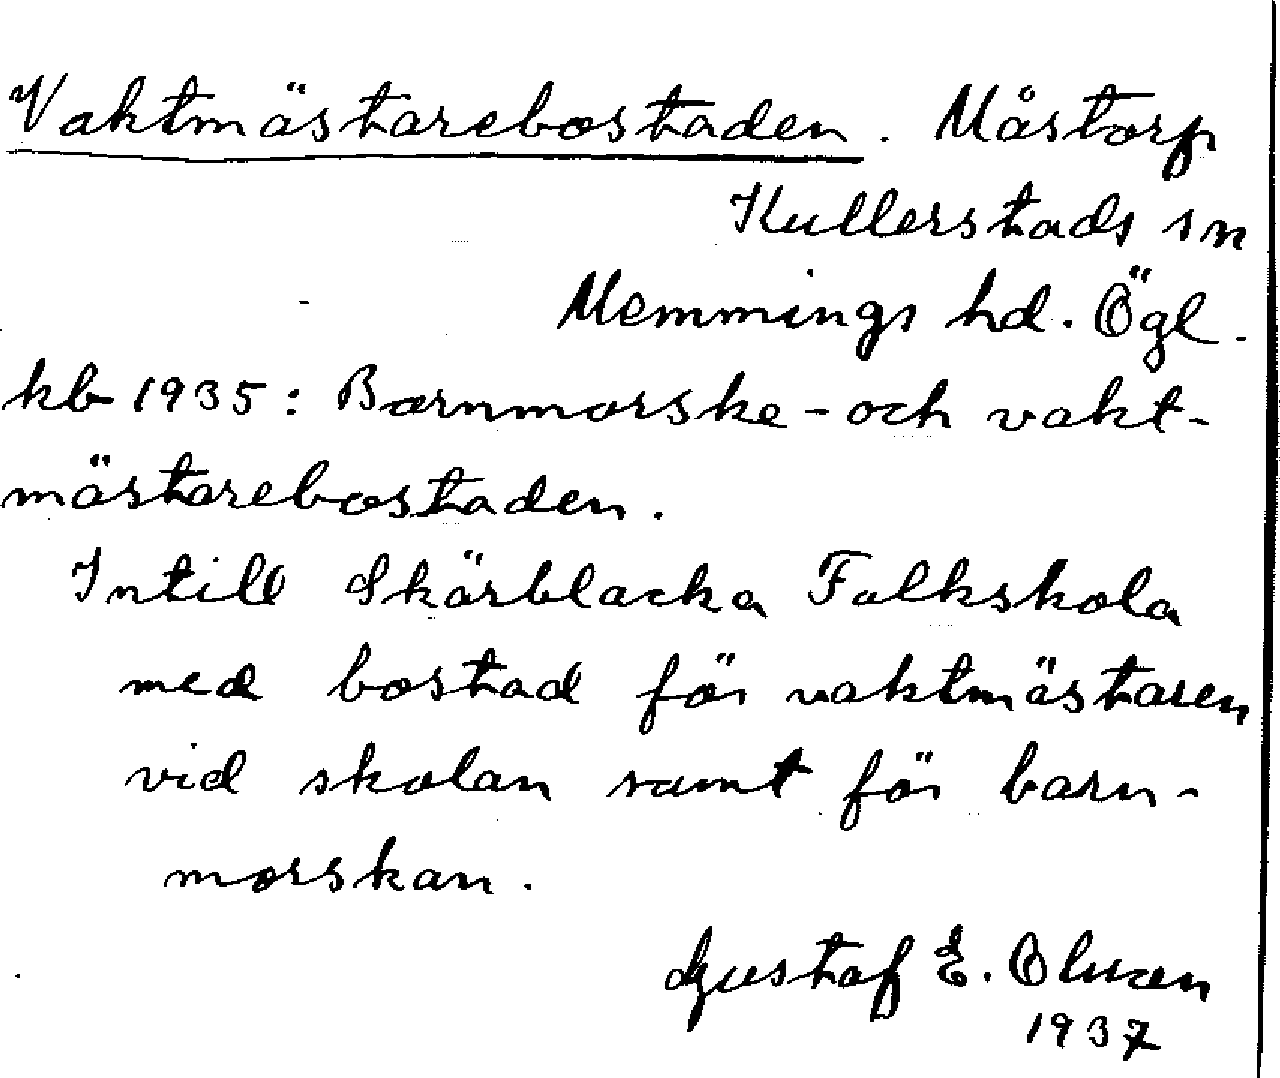 Vaktmästarebostaden. Måstorp
Kullerstads sn
Memmings hd. Ögl.
kb 1935: Barnmorske- och vakt-
mästarebostaden.
Intill Skärblacka Folkskola
med bostad för vaktmästaren
vid skolan samt för barn-
morskan.
Gustaf E. Olsson
1937